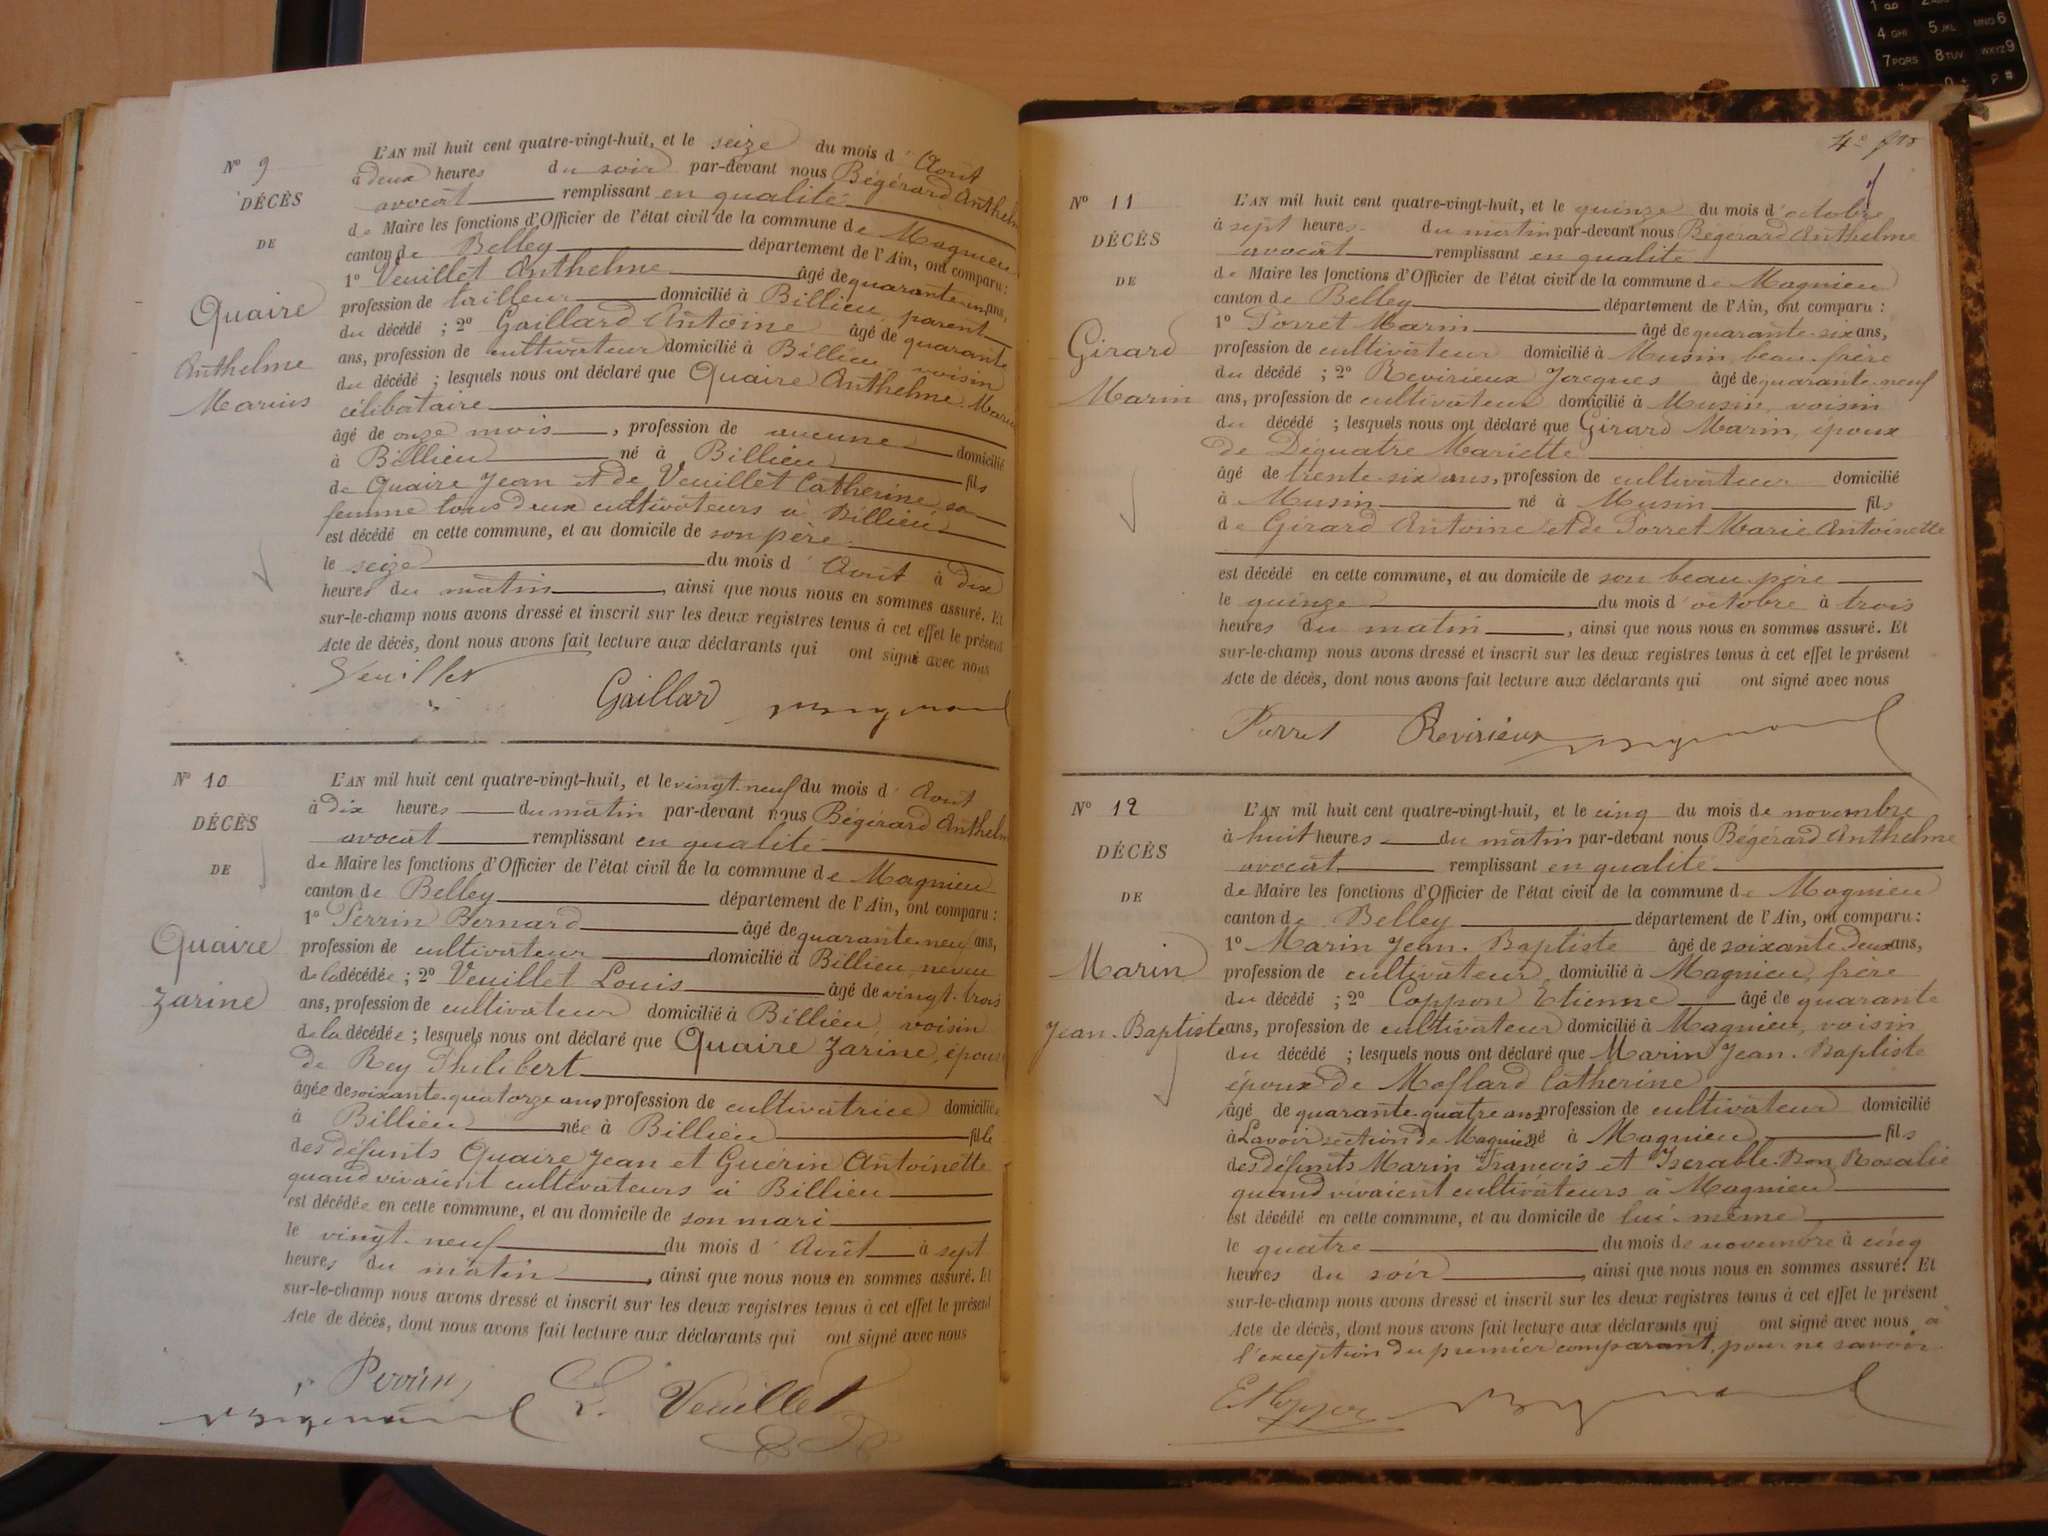 Nº 9
DÉCÈS
DE
Quaire
Anthelme
Marius
L'AN mil huit cent quatre-vingt-huit, et le seize du mois d' Août
à deux heures du soir par-devant nous Bégérard Anthelm
avocat remplissant en qualité
de Maire les fonctions d'Officier de l'état civil de la commune de Magnieu
canton de Belley département de l'Ain, ont comparu :
1º Veuillet Anthelme âgé de quarante un ans,
profession de tailleur domicilié à Billieu, parent
du décédé ; 2º Gaillard Antoine âgé de quarante
ans, profession de cultivateur domicilié à Billieu voisin
du décédé ; lesquels nous ont déclaré que Quaire Anthelme Marius
célibataire
âgé de onze mois, profession de aucune domicilié
à Billieu né à Billieu fils
de Quaire Jean et de Veuillet Catherine sa
femme tous deux cultivateurs à Billieu
est décédé en cette commune, et au domicile de son père
le seize du mois d' Août à dix
heures du matin, ainsi que nous nous en sommes assuré. Et
sur-le-champ nous avons dressé et inscrit sur les deux registres tenus à cet effet le présent
Acte de décès, dont nous avons fait lecture aux déclarants qui ont signé avec nous
Veuillet Gaillard
Nº 10
DÉCÈS
DE
Quaire
Zarine
L'AN mil huit cent quatre-vingt-huit, et le vingt-neuf du mois d' Août
à dix heures du matin par-devant nous Bégérard Anthelm
avocat remplissant en qualité
de Maire les fonctions d'Officier de l'état civil de la commune de Magnieu
canton de Belley département de l'Ain, ont comparu :
1º Perrin Bernard âgé de quarante-neuf ans,
profession de cultivateur domicilié à Billieu neveu
de la décédée ; 2º Veuillet Louis âgé de vingt-trois
ans, profession de cultivateur domicilié à Billieu, voisin
de la décédée ; lesquels nous ont déclaré que Quaire Zarine, épouse
de Rey Philibert
âgée de soixante-quatorze ans profession de cultivatrice domiciliée
à Billieu née à Billieu fille
des défunts Quaire Jean et Guérin Antoinette
quand vivaient cultivateurs à Billieu
est décédée en cette commune, et au domicile de son mari
le vingt-neuf du mois d' Août à sept
heures du matin, ainsi que nous nous en sommes assuré. Et
sur-le-champ nous avons dressé et inscrit sur les deux registres tenus à cet effet le présent
Acte de décès, dont nous avons fait lecture aux déclarants qui ont signé avec nous
Perrin L. Veuillet
4e
Nº 11
DÉCÈS
DE
Girard
Marin
L'AN mil huit cent quatre-vingt-huit, et le quinze du mois d'octobre
à sept heures du matin par-devant nous Bégérard Anthelme
avocat remplissant en qualité
de Maire les fonctions d'Officier de l'état civil de la commune de Magnieu
canton de Belley département de l'Ain, ont comparu :
1º Porret Marin âgé de quarante-six ans,
profession de cultivateur domicilié à Musin, beau-frère
du décédé ; 2º Revirieux Jacques âgé de quarante-neuf
ans, profession de cultivateur domicilié à Musin, voisin
du décédé ; lesquels nous ont déclaré que Girard Marin, époux
de Déquatre Mariette
âgé de trente-six ans, profession de cultivateur domicilié
à Musin né à Musin fils
de Girard Antoine et de Porret Marie Antoinette
est décédé en cette commune, et au domicile de son beau-père
le quinze du mois d'octobre à trois
heures du matin, ainsi que nous nous en sommes assuré. Et
sur-le-champ nous avons dressé et inscrit sur les deux registres tenus à cet effet le présent
Acte de décès, dont nous avons fait lecture aux déclarants qui ont signé avec nous
Porret Revirieux
Nº 12
DÉCÈS
DE
Marin
Jean-Baptiste
L'AN mil huit cent quatre-vingt-huit, et le cinq du mois de novembre
à huit heures du matin par-devant nous Bégérard Anthelme
avocat remplissant en qualité
de Maire les fonctions d'Officier de l'état civil de la commune de Magnieu
canton de Belley département de l'Ain, ont comparu :
1º Marin Jean-Baptiste âgé de soixante deux ans,
profession de cultivateur, domicilié à Magnieu, frère
du décédé ; 2º Coppon Etienne âgé de quarante
ans, profession de cultivateur domicilié à Magnieu, voisin
du décédé ; lesquels nous ont déclaré que Marin Jean-Baptiste
époux de Moflard Catherine
âgé de quarante-quatre ans profession de cultivateur domicilié
à Lavoir section de Magnieu né à Magnieu fils
des défunts Marin François et Iserable-Bon Rosalie
quand vivaient cultivateurs à Magnieu
est décédé en cette commune, et au domicile de lui-même
le quatre du mois de novembre à cinq
heures du soir, ainsi que nous nous en sommes assuré. Et
sur-le-champ nous avons dressé et inscrit sur les deux registres tenus à cet effet le présent
Acte de décès, dont nous avons fait lecture aux déclarants qui ont signé avec nous à
l'exception du premier comparant, pour ne savoir